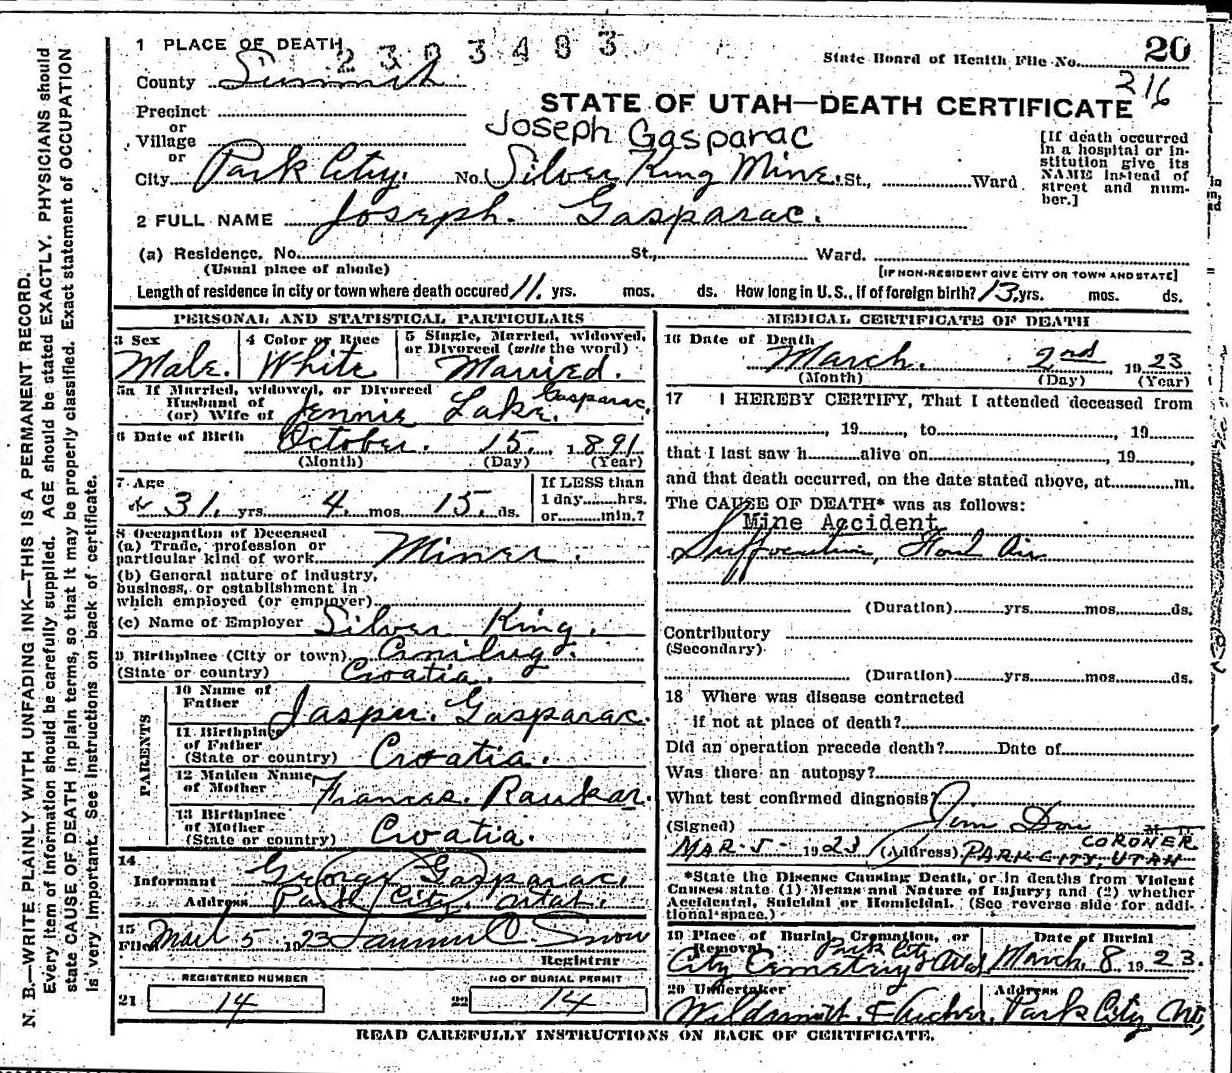 1 PLACE OF DEATH
2303483
20
State Board of Health File No.
216
County Summit
STATE OF UTAH—DEATH CERTIFICATE
Precinct
or
Village
or
Joseph Gasparac
City Park City. No. Silver King Mine. St., Ward
[If death occurred in a hospital or institution give its NAME instead of street and number.]
2 FULL NAME Joseph. Gasparac.
(a) Residence. No. St., Ward.
(Usual place of abode)
[IF NON-RESIDENT GIVE CITY OR TOWN AND STATE]
Length of residence in city or town where death occured 11. yrs. mos. ds. How long in U. S., if of foreign birth? 13. yrs. mos. ds.
PERSONAL AND STATISTICAL PARTICULARS
3 Sex
Male.
4 Color or Race
White
5 Single, Married, widowed, or Divorced (write the word)
Married.
5a If Married, widowed, or Divorced
Husband of
(or) Wife of Jennie Lake. Gasparac.
6 Date of Birth October. 15. 1891
(Month) (Day) (Year)
7 Age
31. yrs. 4. mos. 15. ds.
If LESS than
1 day hrs.
or min.?
8 Occupation of Deceased
(a) Trade, profession or
particular kind of work Miner.
(b) General nature of industry,
business, or establishment in
which employed (or employer)
(c) Name of Employer Silver King.
9 Birthplace (City or town)
(State or country) Croatia.
PARENTS
10 Name of
Father Gasparac.
11 Birthplace
of Father
(State or country) Croatia.
12 Maiden Name
of Mother Frances. Raukar.
13 Birthplace
of Mother
(State or country) Croatia.
14
Informant George Gasparac.
Address Park City. Utah.
15
Filed Mar 5 1923 Snow
Registrar
REGISTERED NUMBER
21 14
NO OF BURIAL PERMIT
22 14
MEDICAL CERTIFICATE OF DEATH
16 Date of Death
March. 2nd 1923
(Month) (Day) (Year)
17 I HEREBY CERTIFY, That I attended deceased from
, 19, to, 19
that I last saw h alive on, 19
and that death occurred, on the date stated above, at m.
The CAUSE OF DEATH* was as follows:
Mine Accident
Suffocation, Foul Air
(Duration) yrs. mos. ds.
Contributory
(Secondary)
(Duration) yrs. mos. ds.
18 Where was disease contracted
if not at place of death?
Did an operation precede death? Date of
Was there an autopsy?
What test confirmed diagnosis?
(Signed) Jim M. D.
CORONER
MAR - 5 - 1923 (Address) PARK CITY, UTAH
*State the Disease Causing Death, or in deaths from Violent
Causes state (1) Means and Nature of Injury; and (2) whether
Accidental, Suicidal or Homicidal. (See reverse side for additional space.)
19 Place of Burial, Cremation, or
Removal Park City
City Cemetery
Date of Burial
March. 8 1923.
20 Undertaker
Address
Park City
READ CAREFULLY INSTRUCTIONS ON BACK OF CERTIFICATE.
N. B.—WRITE PLAINLY WITH UNFADING INK—THIS IS A PERMANENT RECORD.
Every item of information should be carefully supplied. AGE should be stated EXACTLY. PHYSICIANS should
state CAUSE OF DEATH in plain terms, so that it may be properly classified. Exact statement of OCCUPATION
is very important. See Instructions on back of certificate.